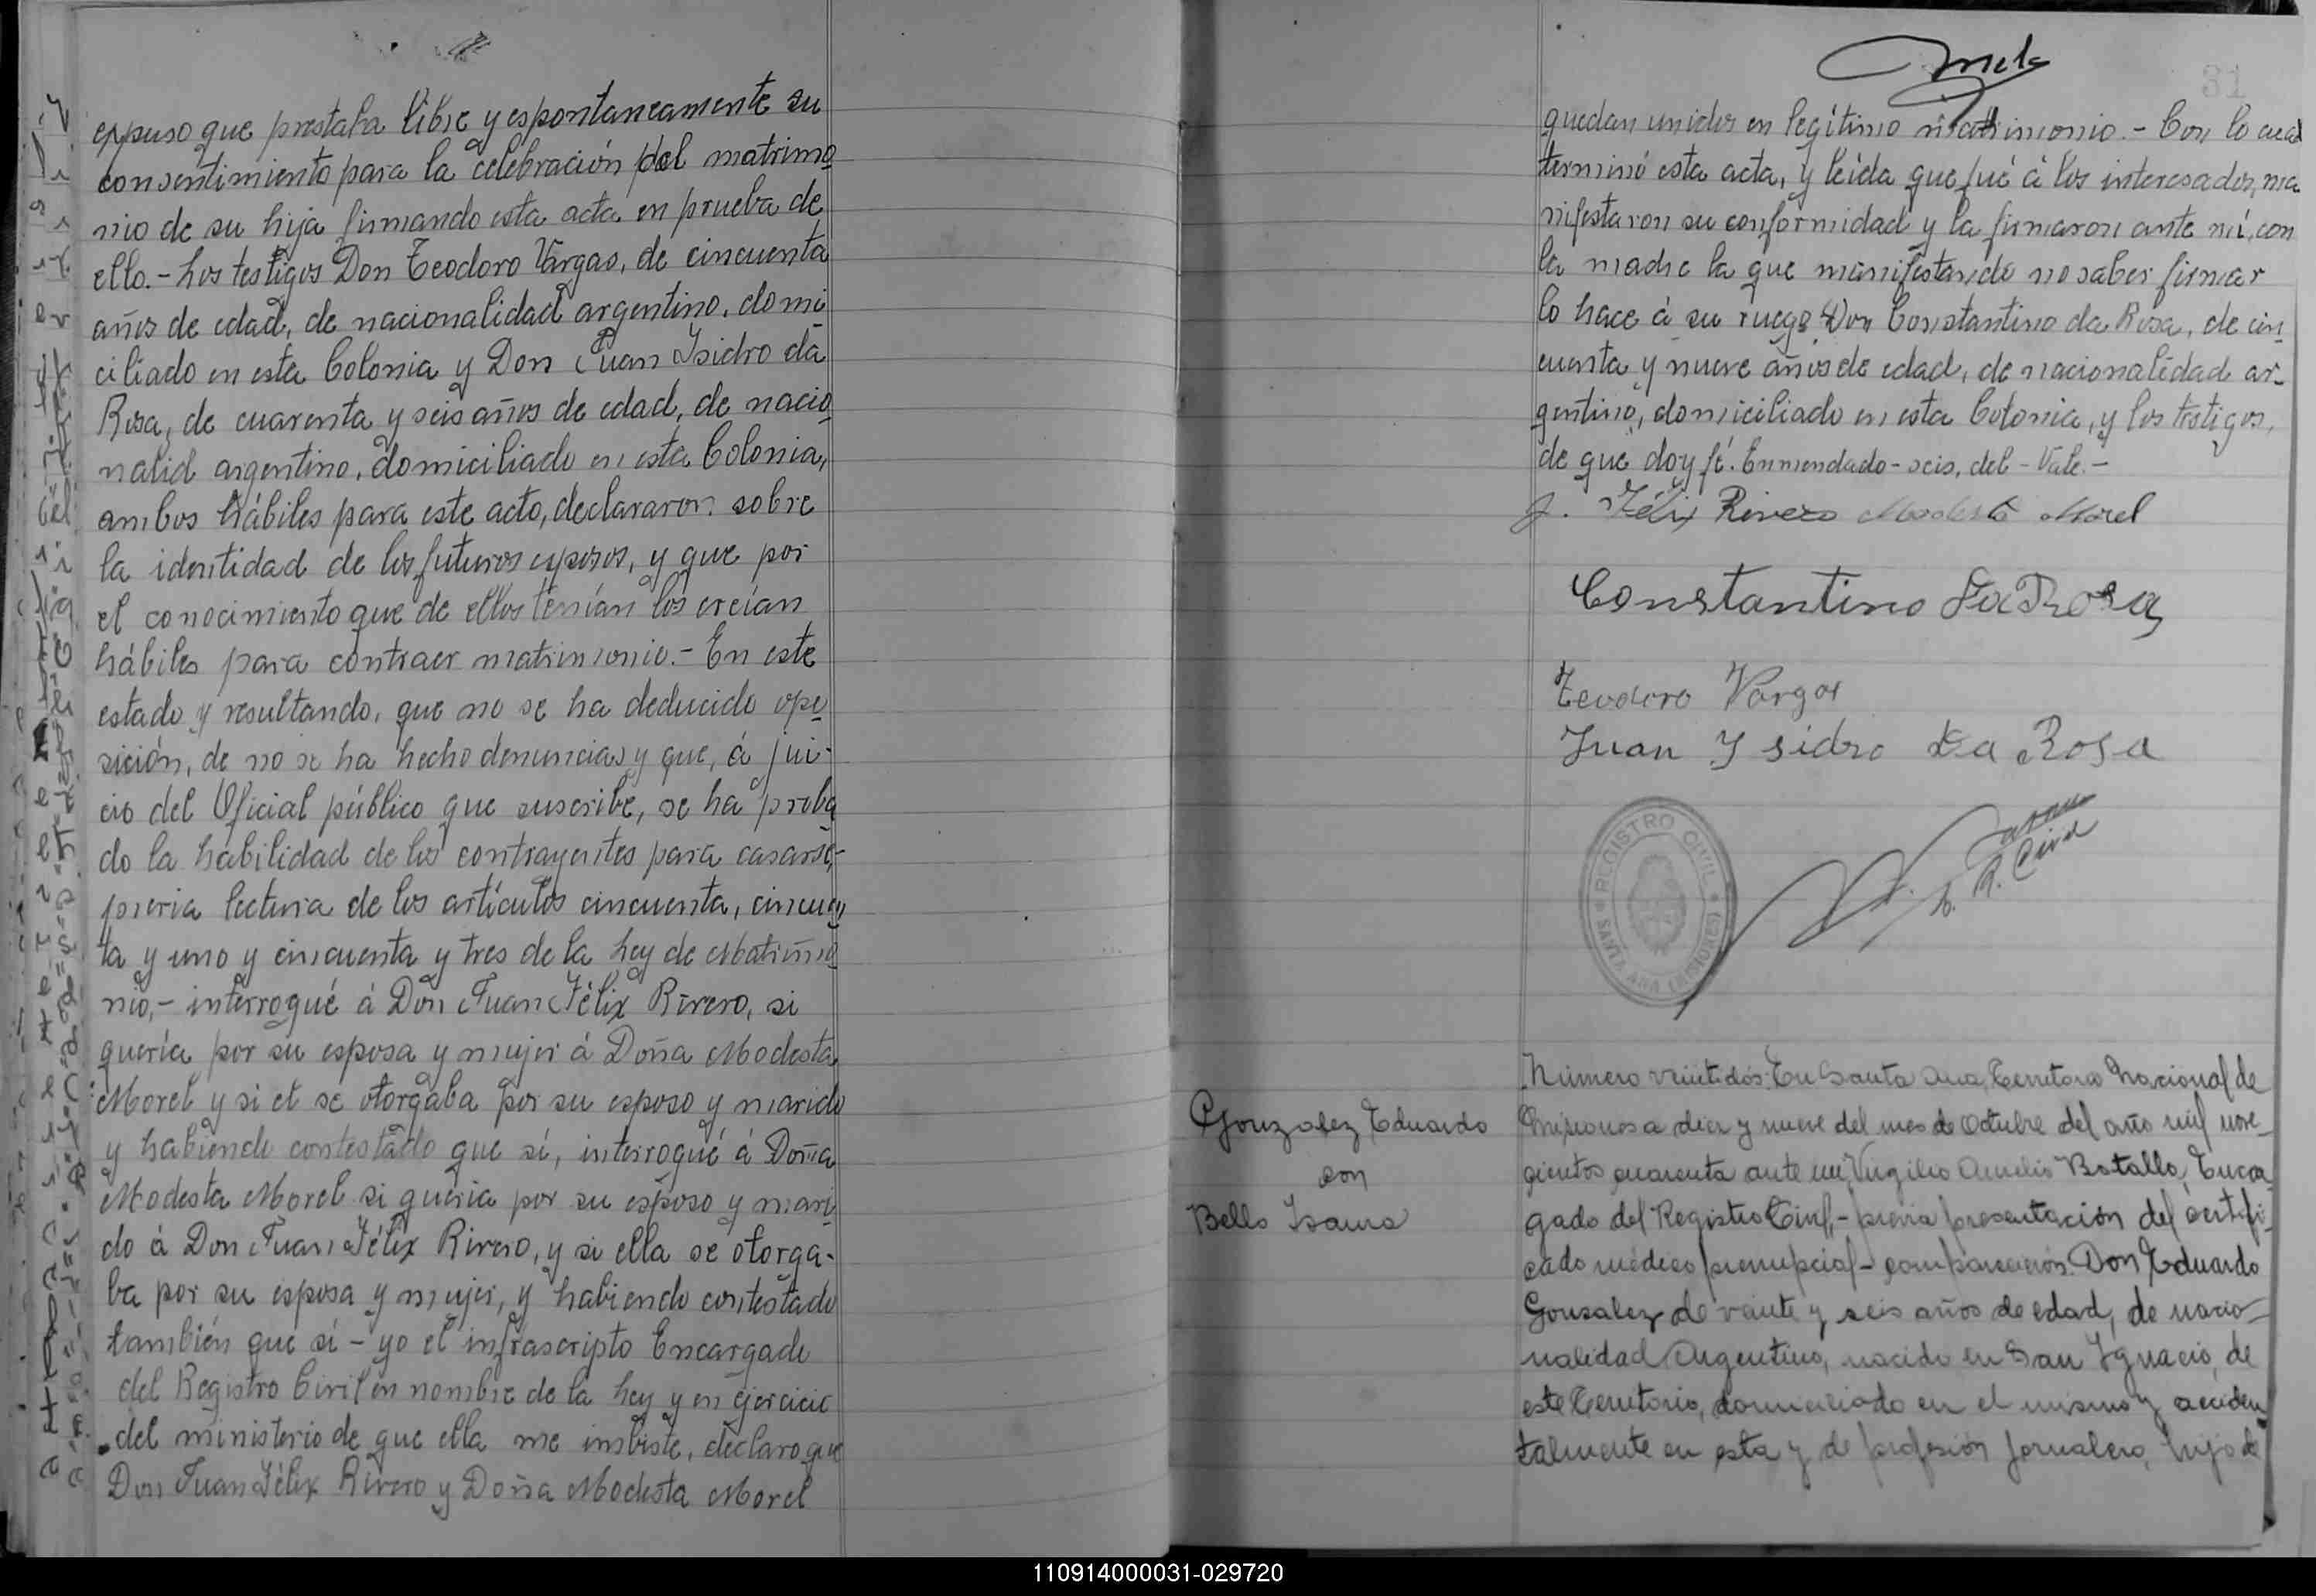 expuso que prestaba libre y espontaneamente su
consentimiento para la celebración del matrimo
nio de su hija firmando esta acta en prueba de
ello.- Los testigos Don Teodoro Vargas, de cincuenta
años de edad, de nacionalidad argentino, domi
ciliado en esta Colonia y Don Juan Isidro da
Rosa, de cuarenta y seis años de edad, de nacio
nalid argentino, domiciliado en esta Colonia,
ambos hábiles para este acto, declararon sobre
la identidad de los futuros esposos, y que por
el conocimiento que de ellos tenían los creían
hábiles para contraer matrimonio.- En este
estado y resultando, que no se ha deducido opo
sición, de no se ha hecho denuncias y que, á jui-
cio del Oficial público que suscribe, se ha proba
do la habilidad de los contrayentes para casarse,-
previa lectura de los artículos cincuenta, cincuen
ta y uno y cincuenta y tres de la Ley de Matrimo
nio,- interrogué á Don Juan Félix Rivero, si
quería por su esposa y mujer á Doña Modesta
Morel y si el se otorgaba por su esposo y marido
y habiendo contestado que sí, interrogué á Doña
Modesta Morel si quería por su esposo y mari
do á Don Juan Félix Rivero, y si ella se otorga-
ba por su esposa y mujer, y habiendo contestado
también que sí - yo el infrascripto Encargado
del Registro Civil en nombre de la Ley y en ejercicio
del ministerio de que ella me inviste, declaro que
Don Juan Félix Rivero y Doña Modesta Morel
31
quedan unidos en legítimo matrimonio.- Con lo cual
terminó esta acta, y leída que fué á los interesados, ma
nifestaron su conformidad y la firmaron ante mí, con
la madre la que manifestando no saber firmar
lo hace á su ruego Don Constantino da Rosa, de cin
cuenta y nueve años de edad, de nacionalidad ar-
gentino, domiciliado en esta Colonia, y los testigos,
de que doy fé. Enmendado - seis, del - Vale.-
J. Félix Rivero Modesta Morel
Constantino Da Rosa
Teodoro Vargas
Juan Ysidro Da Rosa
REGISTRO CIVIL
SANTA ANA (MISIONES)
Número veintidós: En Santa Ana, Territorio Nacional de
Misiones a diez y nueve del mes de Octubre del año mil nove-
Gonzalez Eduardo
con
Bello Isaura
cientos cuarenta ante mi Virgilio Aurelio Batalla, Encar
gado del Registro Civil,- previa presentación del certifi-
cado médico prenupcial - comparecieron: Don Eduardo
Gonzalez de veinte y seis años de edad, de nacio-
nalidad Argentino, nacido en San Ignacio, de
este Territorio, domiciliado en el mismo y acciden
talmente en esta y de profesión jornalero, hijo de
110914000031-029720